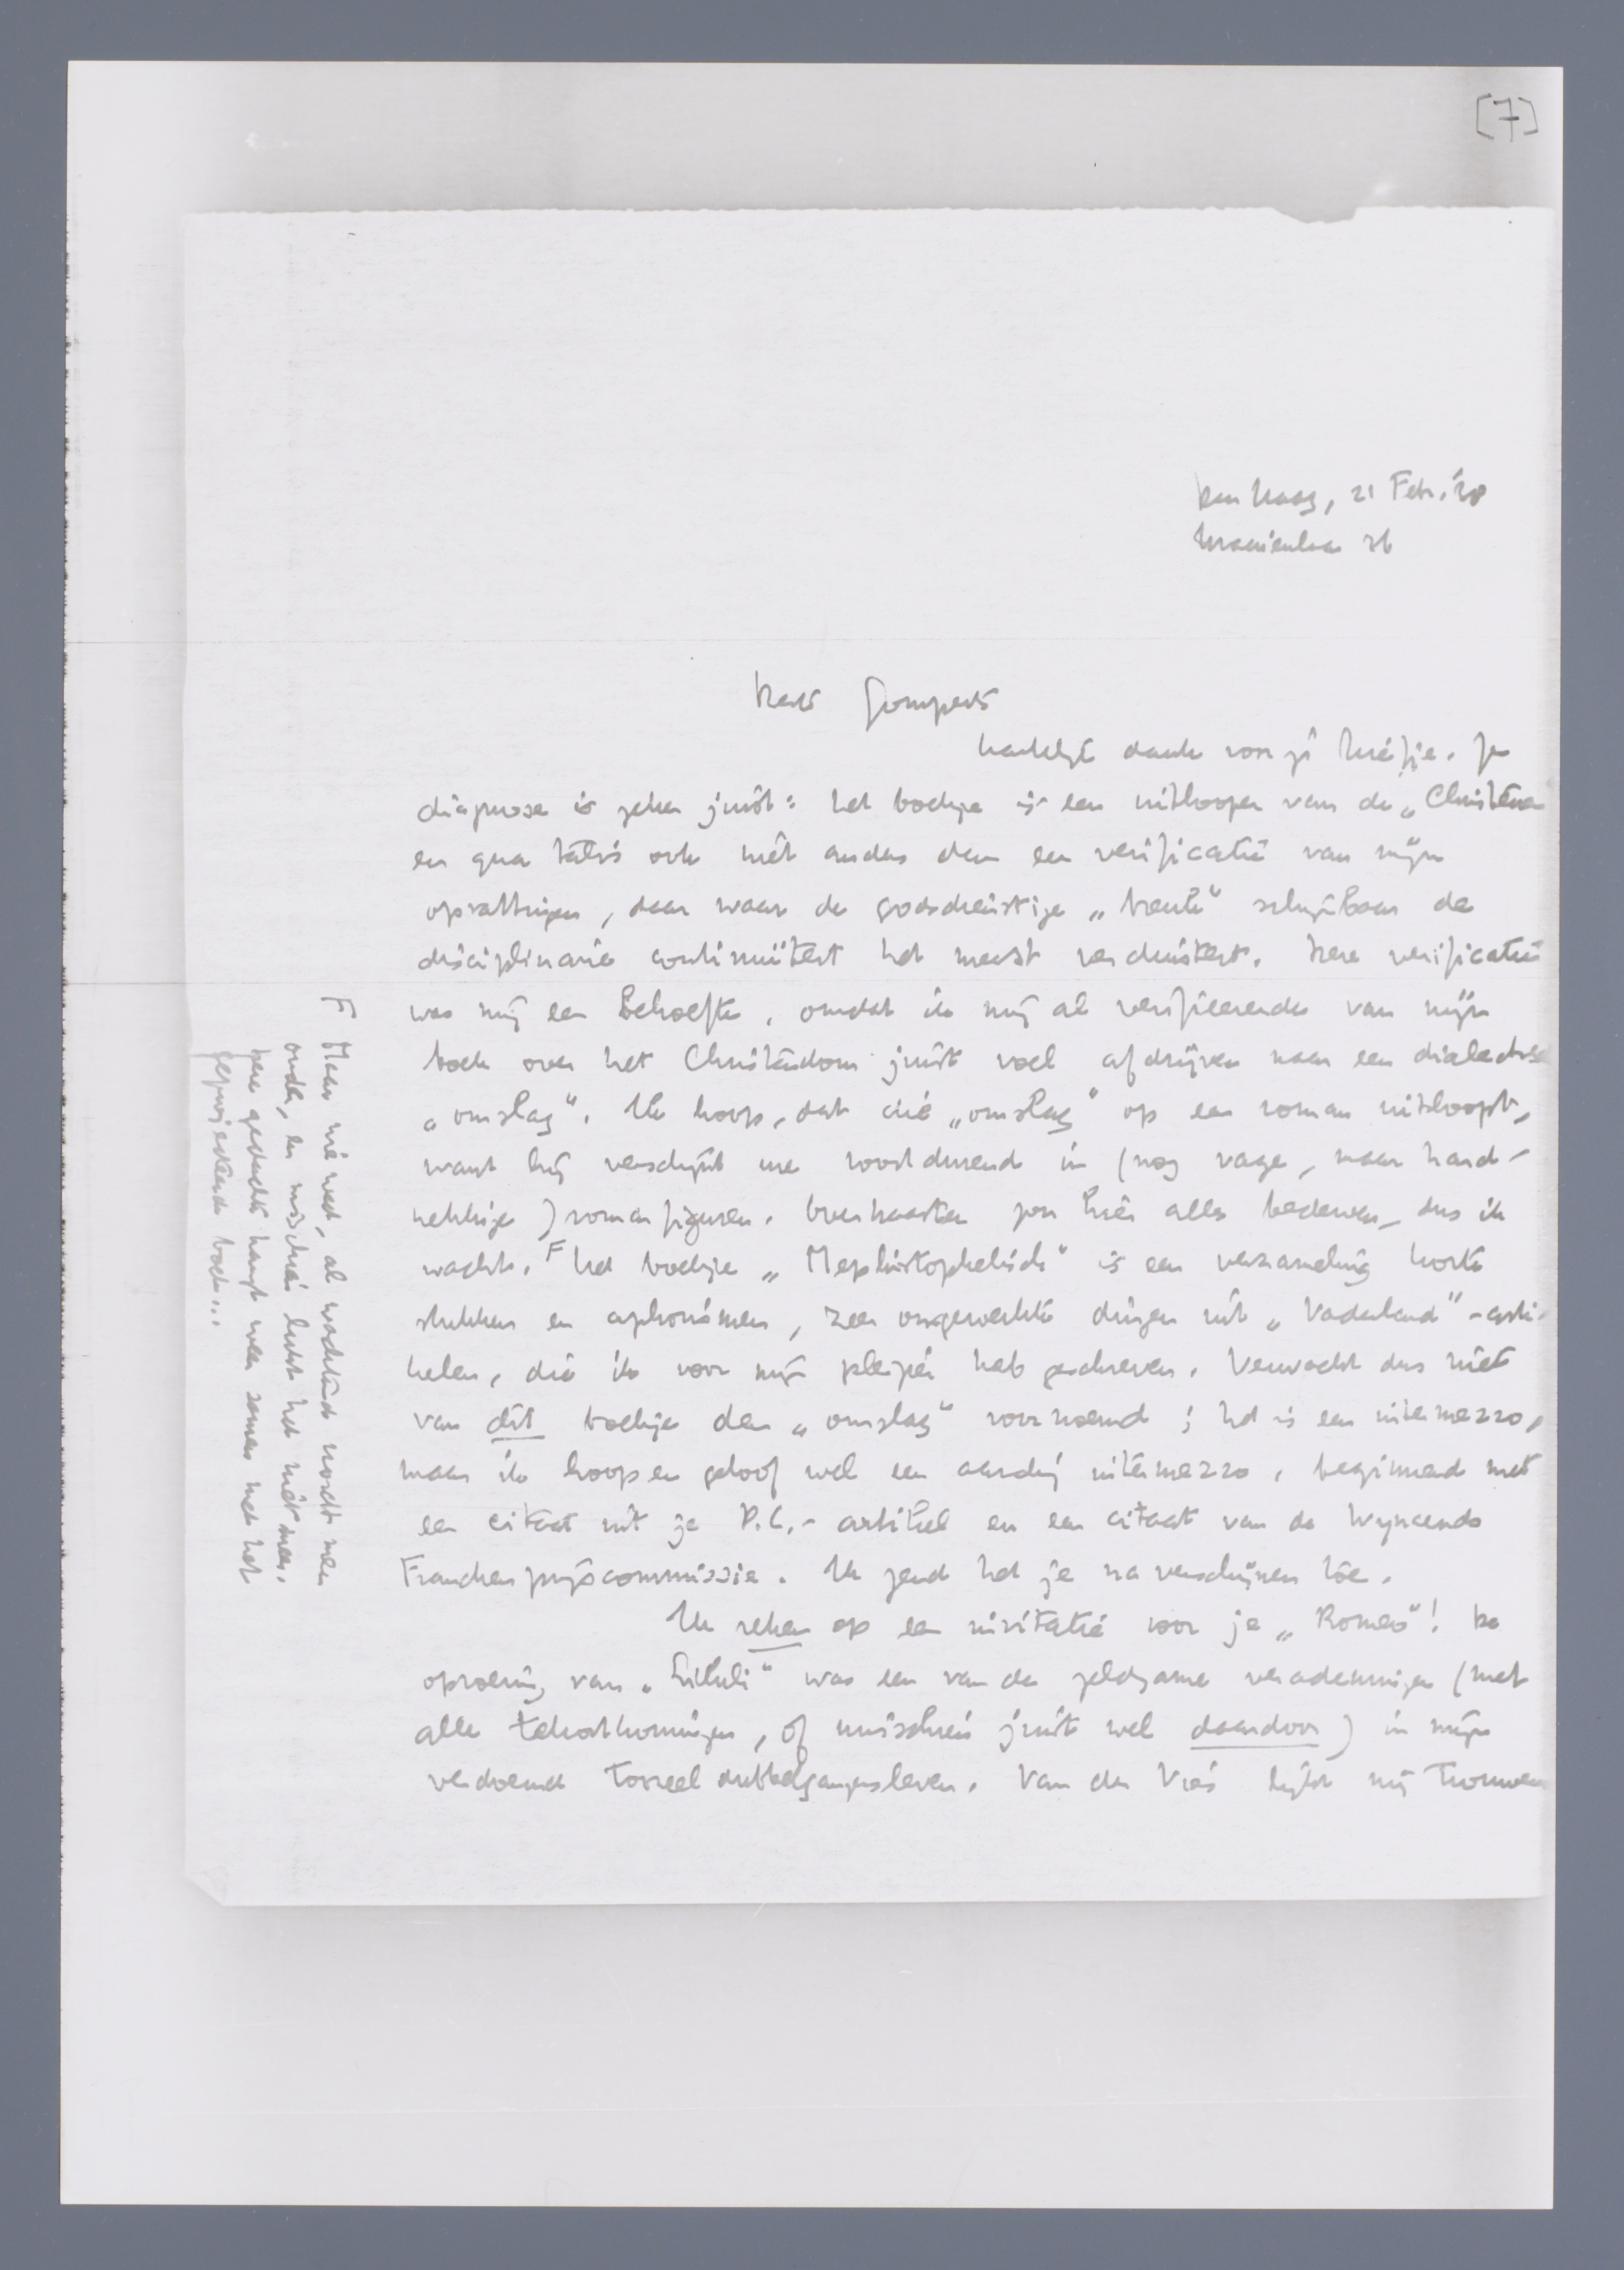 [7]
Den Haag, 21 Febr. '38
Kraaienlaan 36
Beste Gomperts
Hartelijk dank voor je briefje. Je
diagnose is zeker juist: het boekje is een uitlooper van de „Christenen
en qua talis ook niet anders dan een verificatie van mijn
opvattingen, daar waar de godsdienstige „breuk" schijnbaar de
disciplinaire continuïteit het meest verduistert. Deze verificatie
was mij een behoefte, omdat ik mij al verifieerende van mijn
boek over het Christendom juist voel afdrijven naar een dialectische
„omslag". Ik hoop, dat die „omslag" op een roman uitloopt,
want hij verschijnt me voortdurend in (nog vage, maar hard-
nekkige) romanfiguren. Overhaasten zou hier alles bederven, dus ik
wacht. F Het boekje „Mephistophelisch" is een verzameling korte
stukken en aphorismen, zeer omgewerkte dingen uit „Vaderland"-arti-
kelen, die ik voor mijn pleizier heb geschreven. Verwacht dus niet
van dit boekje den „omslag" voornoemd; het is een intermezzo,
maar ik hoop en geloof wel een aardig intermezzo, beginnend met
een citaat uit je P.C.-artikel en een citaat van de Wijnaendts
Francken prijscommissie. Ik zend het je na verschijnen toe.
Ik reken op een invitatie voor je „Romeo"! De
opvoering van „Liluli" was een van de zeldzame verademingen (met
alle tekortkomingen, of misschien juist wel daardoor) in mijn
verdoemd tooneel dubbelgangersleven. Van der Vies lijkt mij trouwens
F Maar wie weet, al wachtend wordt men
ouder, en misschien lukt het niet meer.
Deze gedachte hangt weer samen met het
geprojecteerde boek...